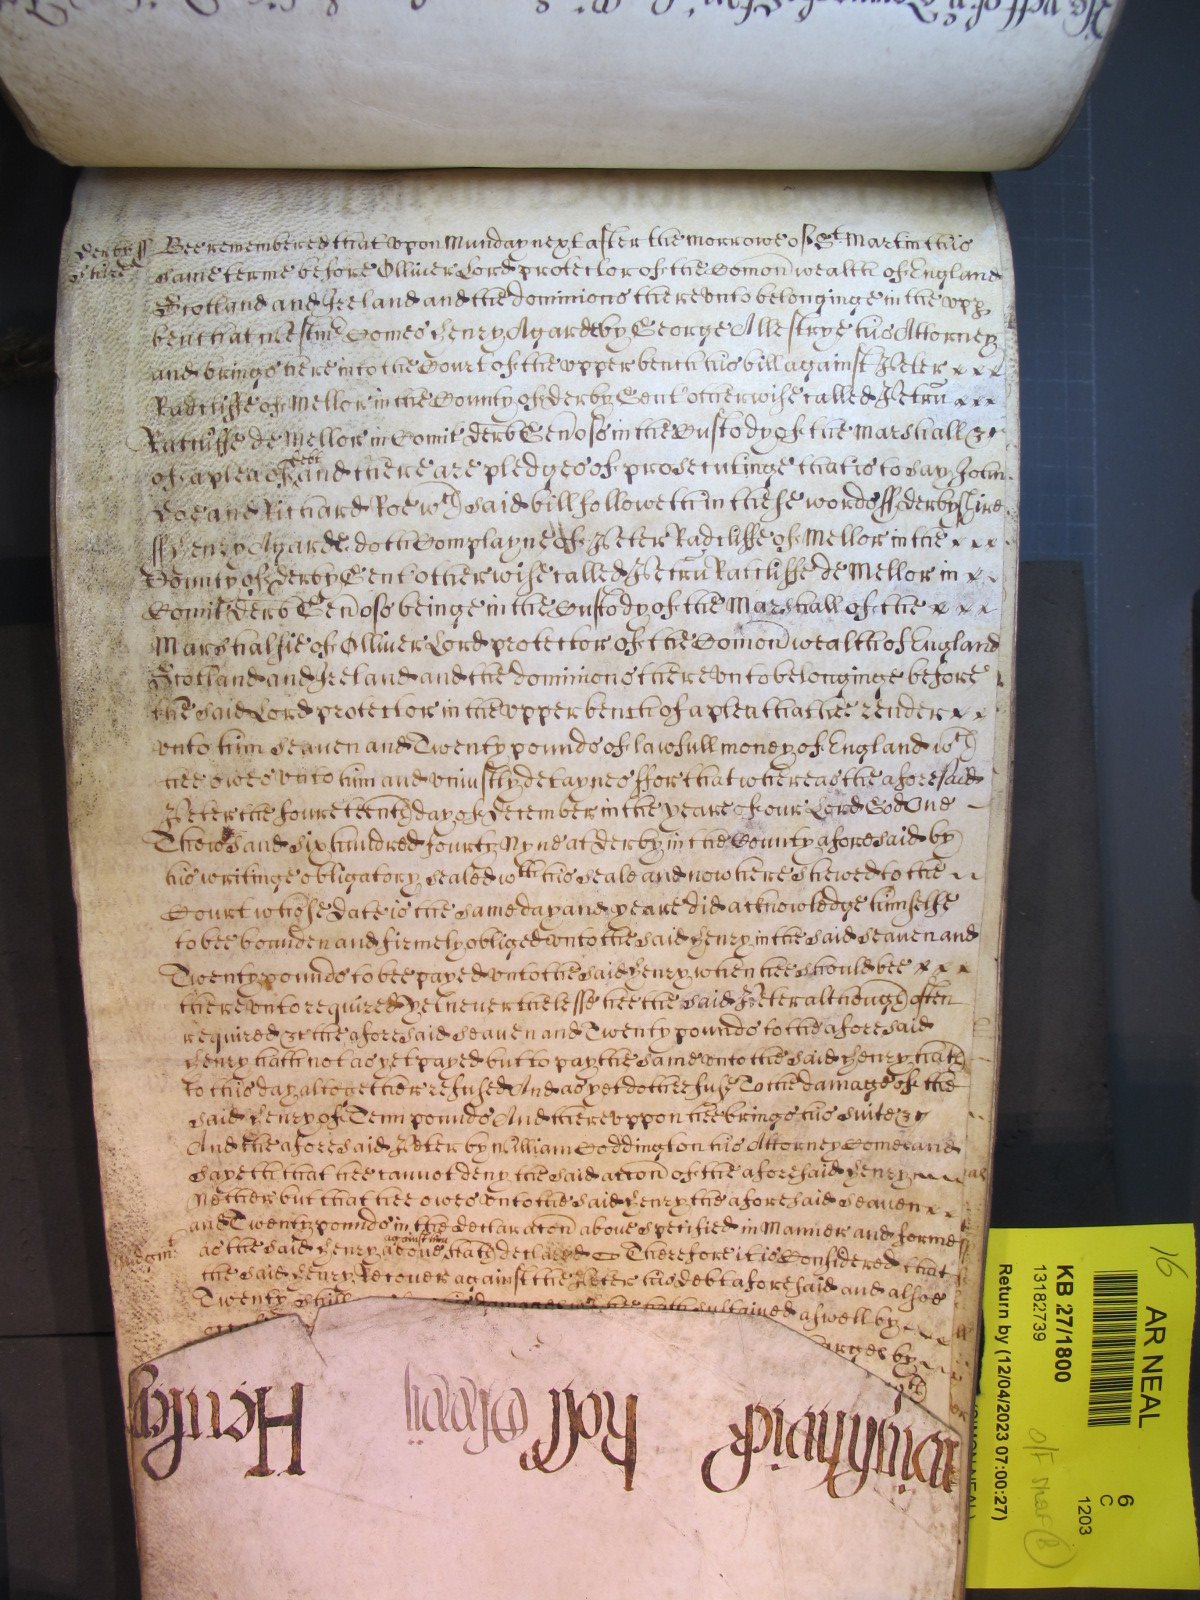 Derbyss Bee remembered that vpon Munday next after the morrowe of St. Martin this
shire same terme before Olliver Lord protector of the Comon wealth of England
Scotland and Ireland and the dominions therevnto belonginge in the vpp
bench at westmr Comes Henry Agard by George Allestrye his Attorney
and brings here into the Court of the vpper bench his bill against Peter
Radcliffe of Mellor in the County of derby Gent otherwise called Petru
Ratcliffe de Mellor in Comit derb Genoso in the Custody of the Marshall &c
of a plea of debt and there are pledges of prosecutinge that is to say John
Doe and Richard Roe wch said bill followeth in these words ss derbyshire
ss Henry Agarde doth Complayne of Peter Radcliffe of Mellor in the
County of derby Gent otherwise called Petru Ratcliffe de Mellor in
Comit derb Genoso beinge in the Custody of the Marshall of the
Marshalsie of Olliver Lord protector of the Comon wealth of England
Scotland and Ireland and the dominions therevnto belonginge before
the said Lord protector in the vpper bench of a plea that hee render
vnto him seaven and Twenty pounds of lawfull money of England wch
hee owes vnto him and vniustly detaynes ffor that whereas the aforesaid
Peter the foureteenth day of December in the yeare of our Lord God One
Thowsand six hundred fourty Nyne at derby in the County aforesaid by
his writinge obligatory sealed wth his seale and now here shewed to the
Court whose date is the same day and yeare did acknowledge himselfe
to bee bounden and firmely obliged vnto the said Henry in the said seaven and
Twenty pounds to bee payed vnto the said Henry when hee should bee
therevnto required Yet neverthelesse hee the said Peter although often
required &c the aforesaid seaven and Twenty pounds to the aforesaid
Henry hath not as yet payed but to pay the same vnto the said Henry hath
to this day altogether refused And as yet doth refuse To the damage of the
said Henry of Tenn pounds And therevppon hee brings his suite &c
And the aforesaid Peter by William Coddington his Attorney Comes and
sayeth that hee cannot deny the said accon of the aforesaid Henry
Nether but that hee owes vnto the said Henry the aforesaid seaven
and Twenty pounds in the declaracon above specified in Manner and forme
as the said Henry above against him hath declared Therefore it is Considered that
the said Henry Recover against the Peter his debt aforesaid and alsoe
Twenty shill damages hee hath sustained aswell by
arges by
Henry Roll Warwick
AR NEAL
KB 27/1800
13182739
Return by (12/04/2023 07:00:27)
6
C
1203
16